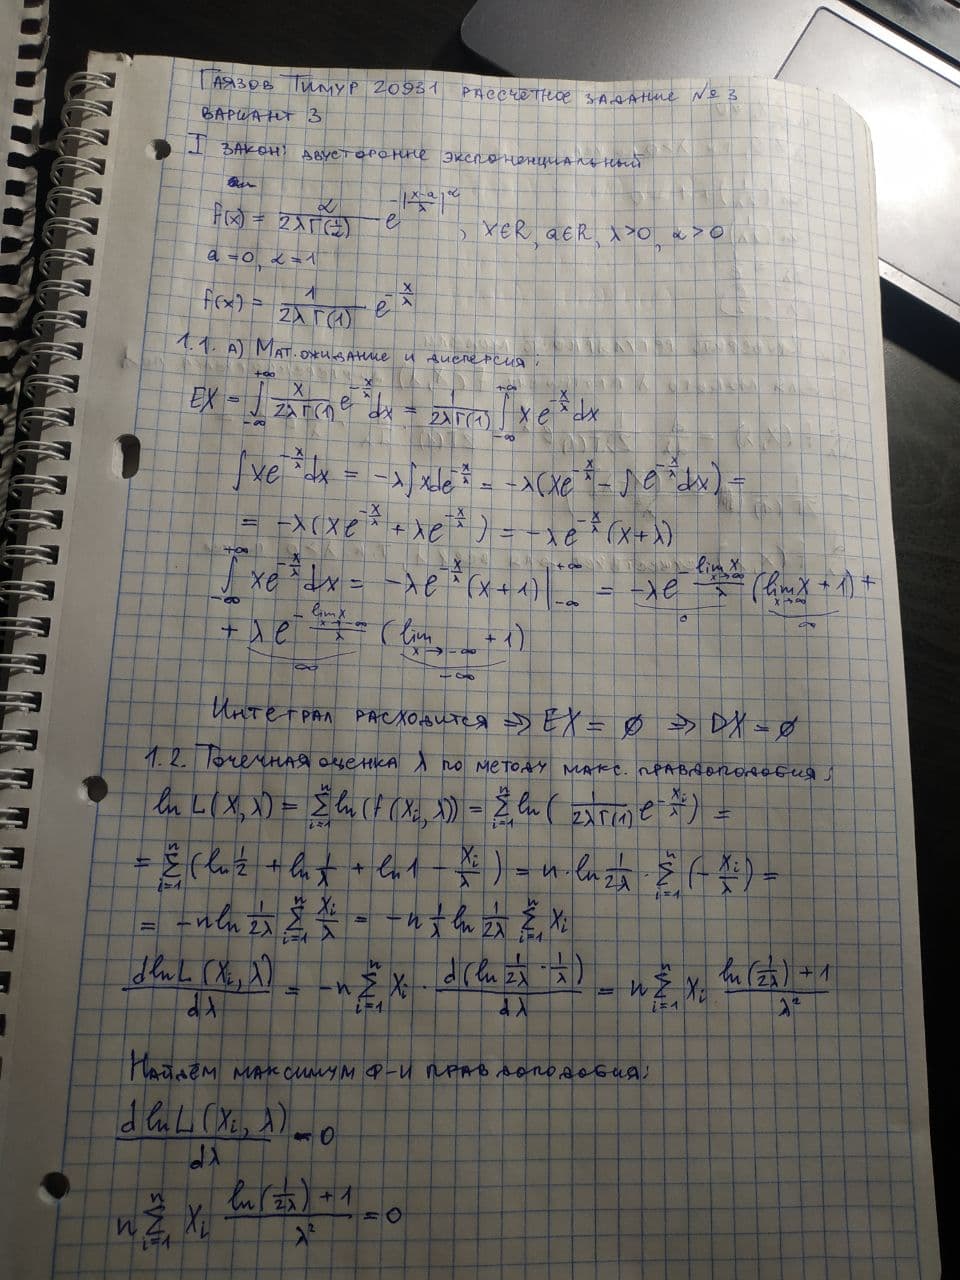 Гаязов Тимур 20931 рассчётное задание №3
Вариант 3
I закон: двусторонне экспоненциальный
f(x) = α/(2λΓ(1/α)) e^(-|(x-a)/λ|^α), x∈R, a∈R, λ>0, α>0
a=0, α=1
f(x) = 1/(2λΓ(1)) e^(-x/λ)
1.1. а) Мат. ожидание и дисперсия:
EX = ∫_{-∞}^{+∞} x/(2λΓ(1)) e^(-x/λ) dx = 1/(2λΓ(1)) ∫_{-∞}^{+∞} x e^(-x/λ) dx
∫xe^(-x/λ)dx = -λ∫xde^(-x/λ) = -λ(xe^(-x/λ) - ∫e^(-x/λ)dx) =
= -λ(xe^(-x/λ) + λe^(-x/λ)) = -λe^(-x/λ)(x+λ)
∫_{-∞}^{+∞} xe^(-x/λ)dx = -λe^(-x/λ)(x+1)|_{-∞}^{+∞} = -λe^(-lim_{x→∞} x/λ) (lim_{x→∞} x + 1) +
0 ∞
+ λe^(-lim_{x→-∞} x/λ) (lim_{x→-∞} + 1)
∞ -∞
Интеграл расходится ⇒ EX = ∅ ⇒ DX = ∅
1.2. Точечная оценка λ по методу макс. правдоподобия:
ln L(X,λ) = Σ_{i=1}^{n} ln(f(Xi,λ)) = Σ_{i=1}^{n} ln(1/(2λΓ(1)) e^(-Xi/λ)) =
= Σ_{i=1}^{n} (ln 1/2 + ln 1/λ + ln 1 - Xi/λ) = n·ln 1/(2λ) · Σ_{i=1}^{n} (-Xi/λ) =
= -n ln 1/(2λ) Σ_{i=1}^{n} Xi/λ = -n 1/λ ln 1/(2λ) Σ_{i=1}^{n} Xi
dlnL(Xi,λ)/dλ = -n Σ_{i=1}^{n} Xi · d(ln 1/(2λ) · 1/λ)/dλ = n Σ_{i=1}^{n} Xi (ln(1/(2λ)) + 1)/λ²
Найдём максимум ф-и правдоподобия:
dlnL(Xi,λ)/dλ = 0
n Σ_{i=1}^{n} Xi (ln(1/(2λ)) + 1)/λ² = 0